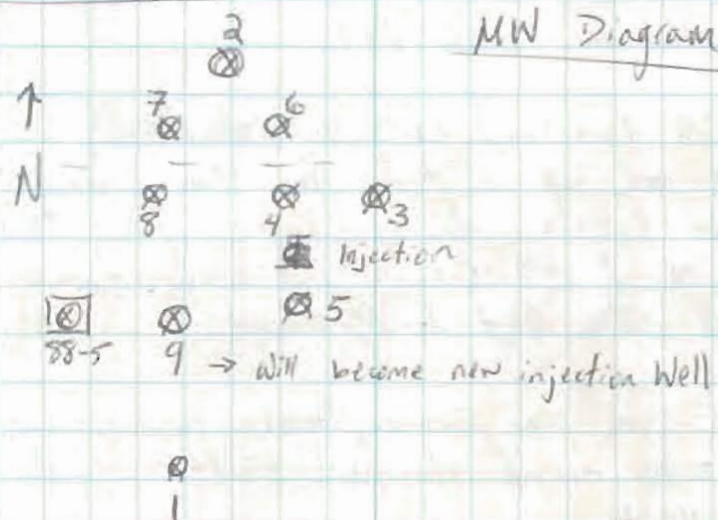 MW Diagram
2
7 6
N
8 4 3
Injection
5
88-5 9 → will become new injection Well
1